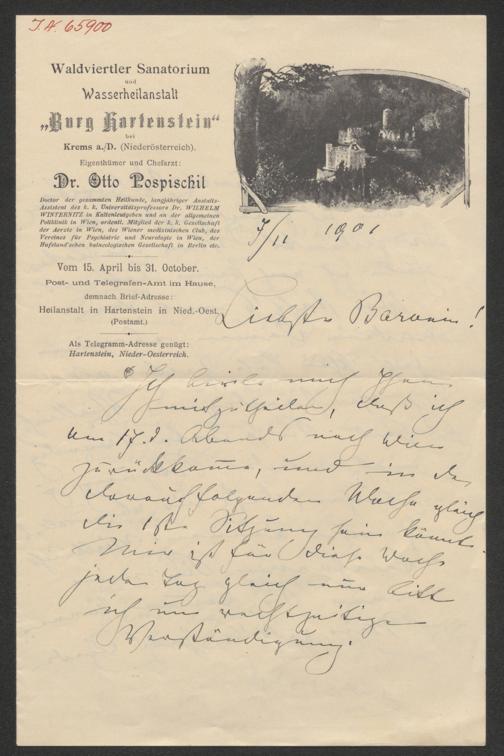 J.N. 65900
Waldviertler Sanatorium
und
Wasserheilanstalt
„Burg Hartenstein“
bei
Krems a./D. (Niederösterreich).
Eigenthümer und Chefarzt:
Dr. Otto Pospischil
Doctor der gesammten Heilkunde, langjähriger Anstalts-
Assistent des k. k. Universitätsprofessors Dr. WILHELM
WINTERNITZ in Kaltenleutgeben und an der allgemeinen
Poliklinik in Wien, ordentl. Mitglied der k. k. Gesellschaft
der Aerzte in Wien, des Wiener medicinischen Club, des
Vereines für Psychiatrie und Neurologie in Wien, der
Hufeland'schen balneologischen Gesellschaft in Berlin etc.
Vom 15. April bis 31. October.
Post- und Telegrafen-Amt im Hause,
demnach Brief-Adresse:
Heilanstalt in Hartenstein in Nied.-Oest.
(Postamt.)
Als Telegramm-Adresse genügt:
Hartenstein, Nieder-Oesterreich.
1901
Liebste Baronin!
Ich beeile mich Ihnen
mitzutheilen, daß ich
am 17. d. Abends nach Wien
zurückkomme, und in der
darauffolgenden Woche gleich
die 1te Sitzung sein könnte.
Mir ist für diese Woche
jeder Tag gleich nur bitt
ich um rechtzeitige
Verständigung.